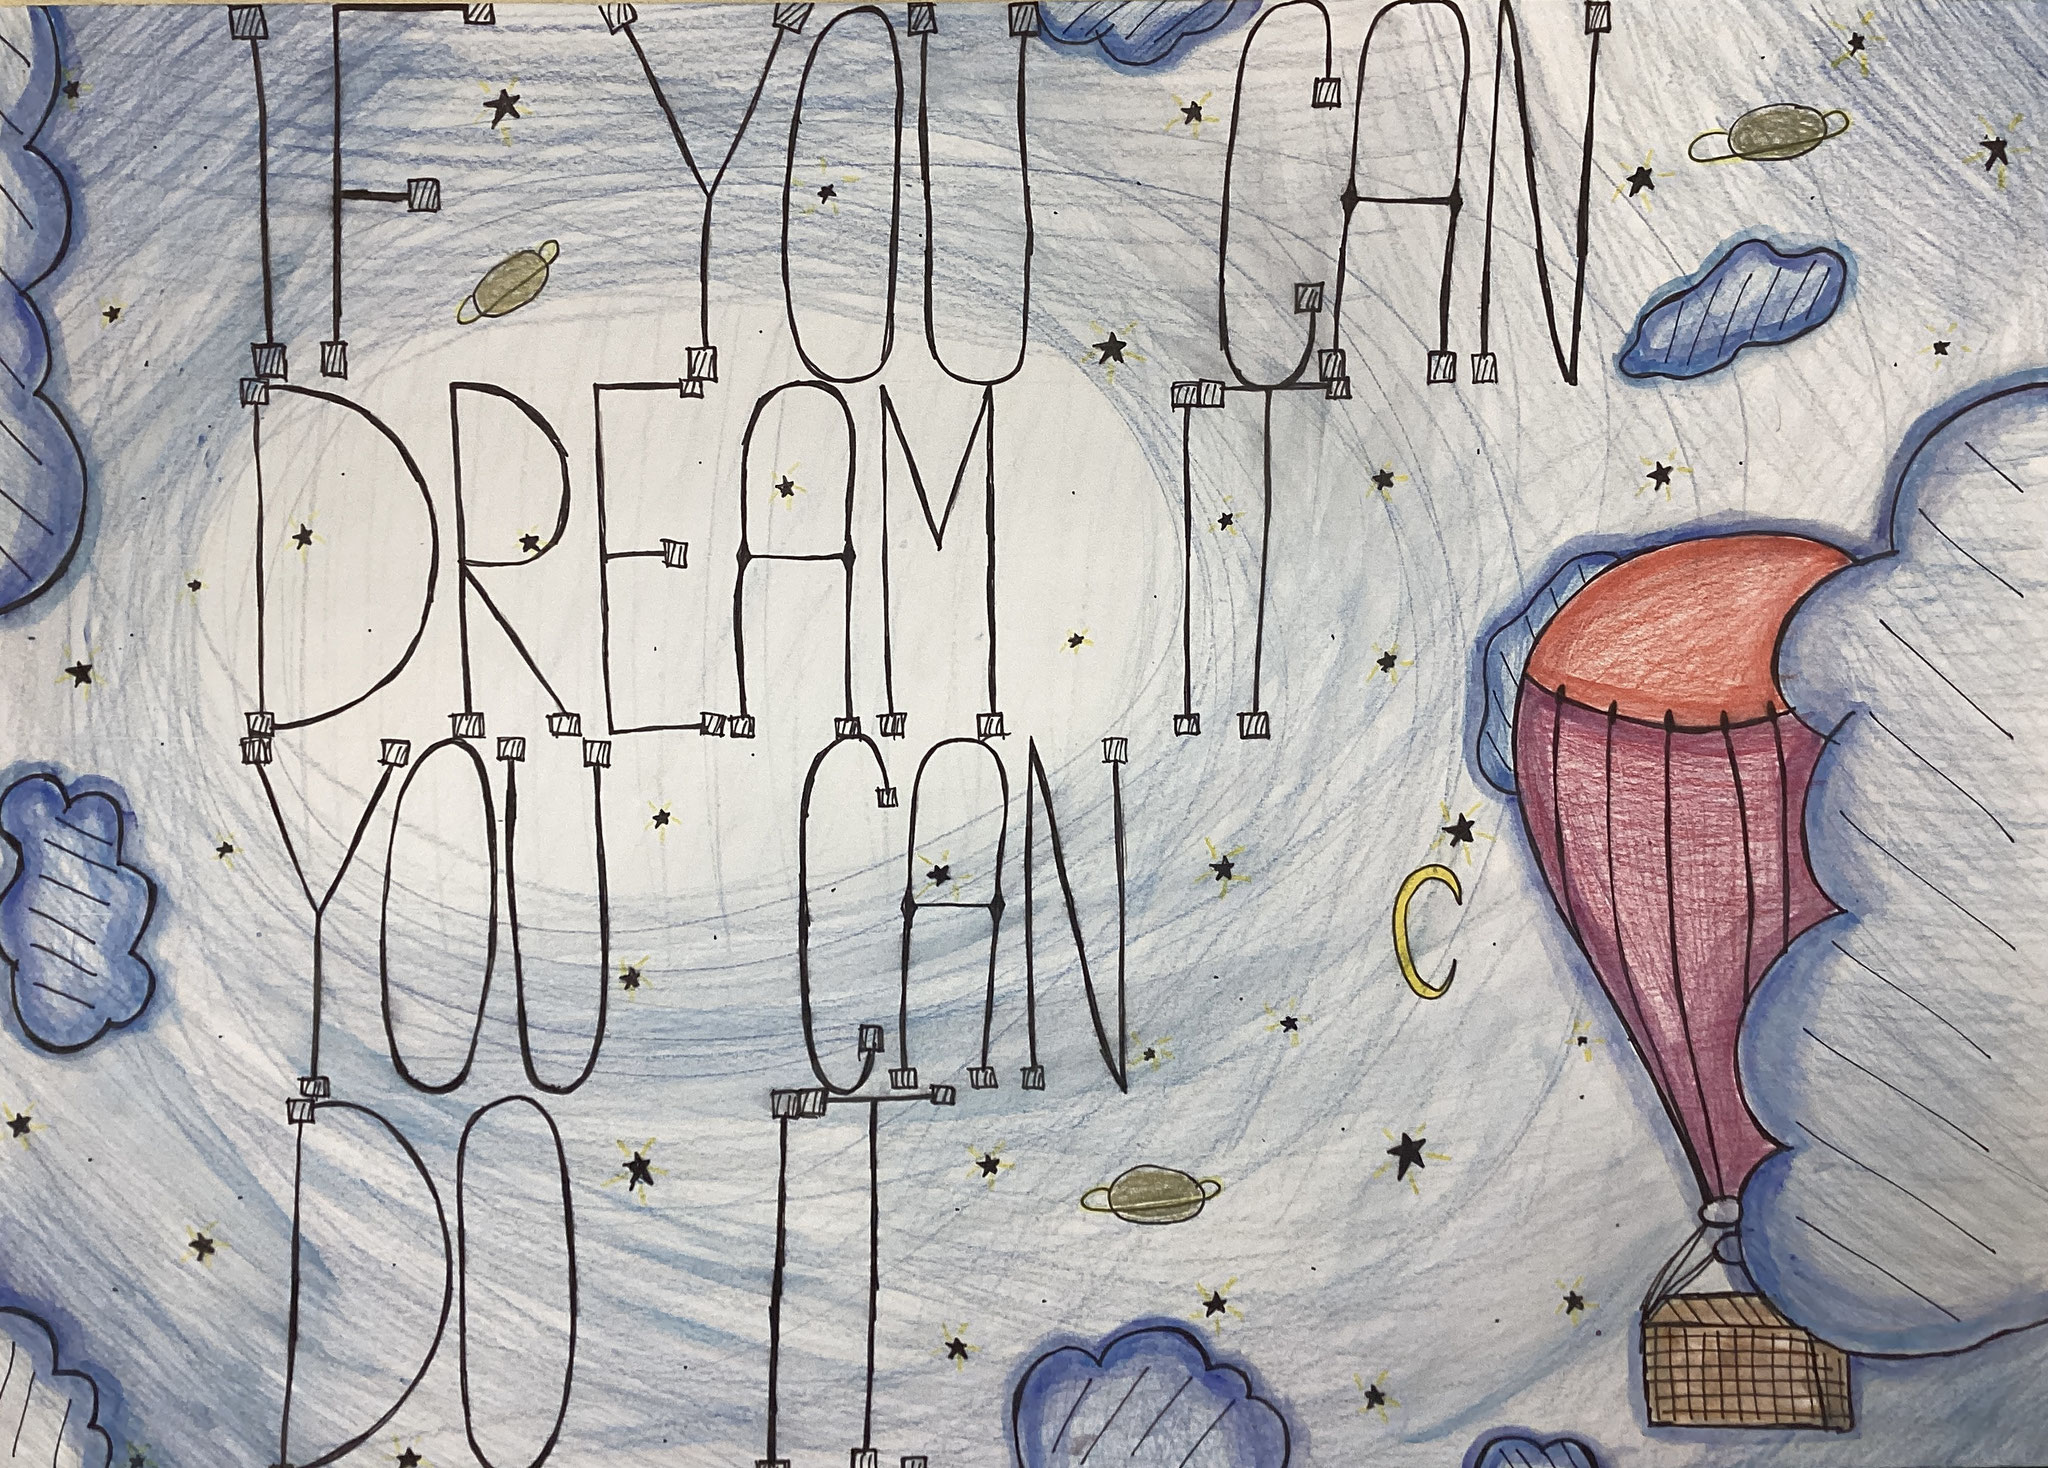 IF YOU CAN
DREAM IT
YOU CAN
DO IT